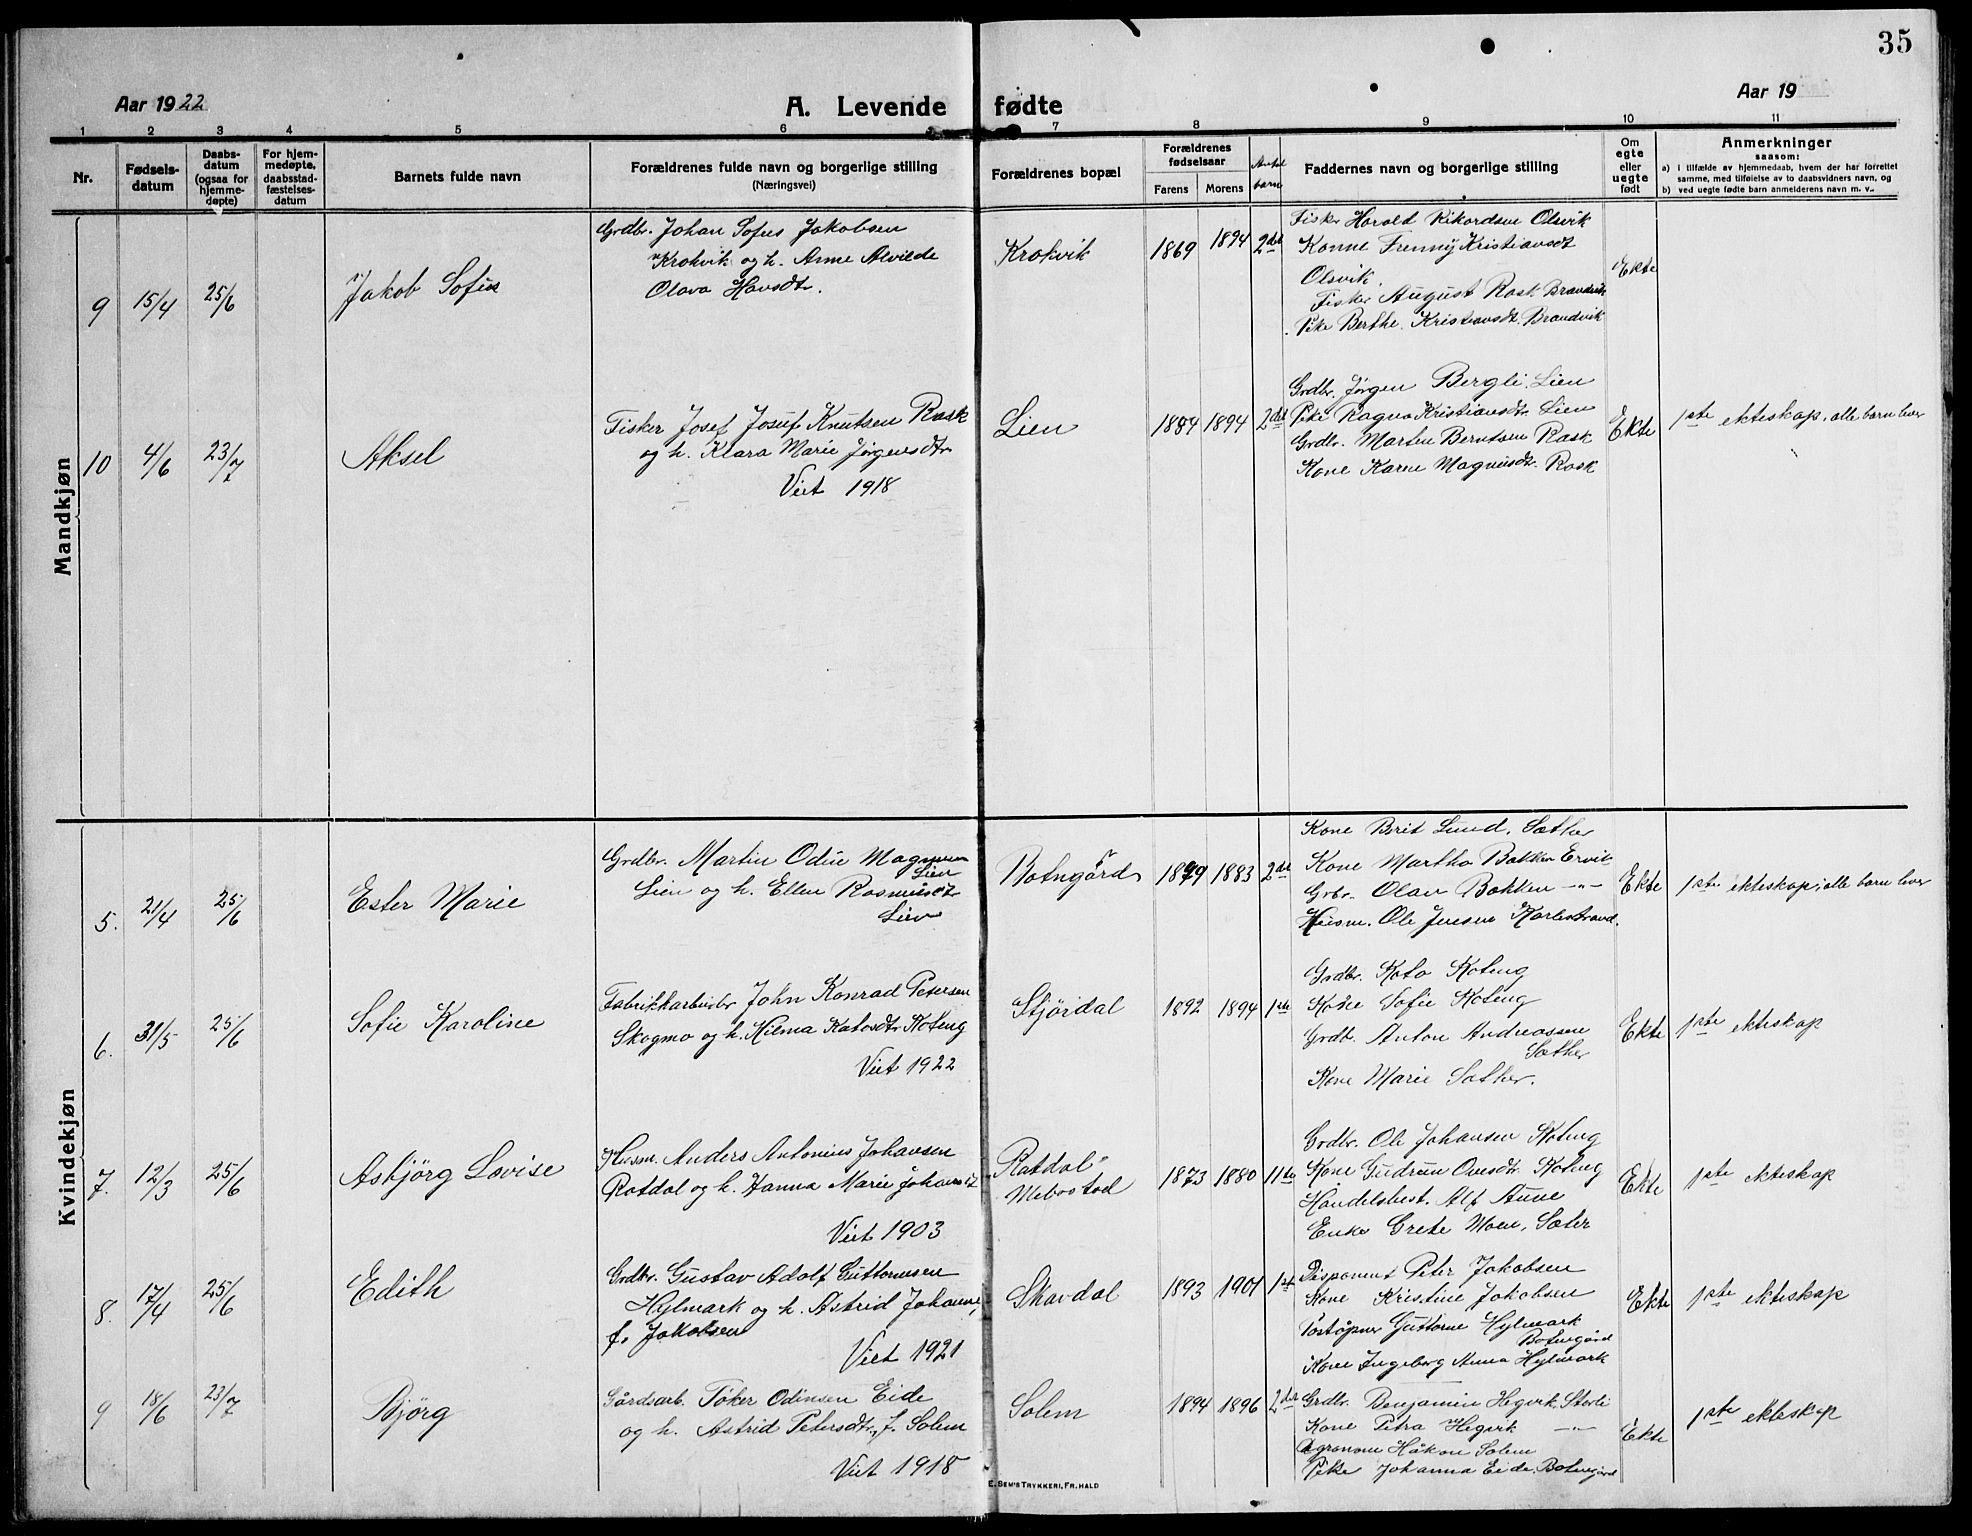 35
Aar 1922
A. Levende fødte
Aar 19
1 2 3 4 5 6 7 8 9 10 11
Nr.
Fødsels-
datum
Daabs-
datum
(ogsaa for
hjemme-
døpte)
For hjem-
medøpte,
daabsstad-
fæstelses-
datum
Barnets fulde navn
Forældrenes fulde navn og borgerlige stilling
(Næringsvei)
Forældrenes bopæl
Forældrenes
fødselsaar
Farens Morens
Antal
barn
Faddernes navn og borgerlige stilling
Om
egte
eller
uegte
født
Anmerkninger
saasom:
a) i tilfælde av hjemmedaab, hvem der har forrettet
samme, med tilføielse av to daabsvidners navn, og
b) ved uegte fødte barn anmelderens navn m. v..
Mandkjøn
9 15/4 25/6
Jakob Sofus
Grdbr. Johan Sofus Jakobsen
Krokvik og h. Anne Alvilde
Olava Havsdtr.
Krokvik
1869 1894 2det
Fisker Harald Rikardsen Olsvik
Konne Frenny Kristiansdt
Olsvik.
Fisker August Rask Brandvik
Pike Berthe Kristiansdt. Brandvik
Ekte
10 4/6 23/7
Aksel
Fisker Josef Josuf Knutsen Rask
og h. Klara Marie Jørgensdtr
Viet 1918
Lien
1884 1894 2det
Grdbr. Jørgen Bergli, Lien
Pike Ragna Kristiansdtr. Lien
Grdbr. Marten Berntsen Rask
Kone Karen Magnusdt. Rask
Ekte
1ste ekteskap, alle barn lever
Kvindekjøn
5. 21/4 25/6
Ester Marie
Grdbr. Martin Odin Magnusen
Lien
Lien og h. Ellen Rasmusdt
Lien
Botngård
1879 1883 2det
Kone Berit Lund, Sæther
Kone Martha Bakken Ervik
Grbr. Olan Bakken -"-
Husm. Ole Jensen Karlestrand.
Ekte
1ste ekteskap; alle barn lever
6. 31/5 25/6
Sofie Karoline
Fabrikkarbeider John Konrad Petersen
Skogmo og h. Hilma Katosdtr Koteng
Viet 1922
Stjørdal
1892 1894 1ste
Grdbr. Kato Koteng
Kone Sofie Koteng
Grdb. Anton Andreassen
Sæther
Kone Marie Sæther.
Ekte
1ste ekteskap
7. 12/3 25/6
Asbjörg Lovise
Husm. Anders Antonius Johansen
Ratdal og h. Hanna Marie Johansdt
Viet 1903
"Ratdal"
Mebostad
1873 1880 11te
Grdbr. Ole Johansen Koteng
Kone Gudrun Ovesdtr. Koteng
Handelsbest. Alf Aune
Enke Grete Moen, Sæter
Ekte
1ste ekteskap
8. 17/4 25/6
Edith
Grdbr. Gustav Adolf Guttormsen
Hylmark og h. Astrid Johanne,
f. Jakobsen
Viet 1921
Skavdal
1893 1901 1ste
Disponent Peter Jakobsen
Kone Kristine Jakobsen
Poståpner Guttorm Hylmark
Botngård
Kone Ingeborg Anna Hylmark
Ekte
1ste ekteskap
9 18/6 23/7
Bjørg
Gårdsarb. Toker Odinsen Eide
og h. Astrid Petersdtr., f. Solem
Viet 1918
Solem
1894 1896 2det
Grdbr. Benjamin Hegvik, Sterli
Kone Petra Hegvik -"-
Agronom Håkon Solem
Pike Johanna Eide, Botngård
Ekte
1ste ekteskap
E. SEM'S TRYKKERI, FR. HALD